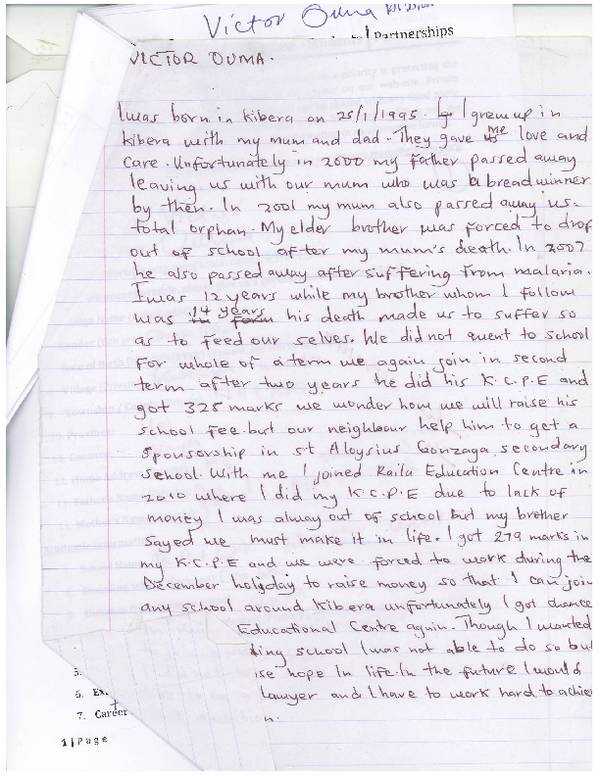 Victor Ouma
| Partnerships
VICTOR OUMA.
I was born in Kibera on 25/1/1995. I grew up in
kibera with my mum and dad. They gave me love and
care. Unfortunately in 2000 my father passed away
leaving us with our mum who was a breadwinner
by then. In 2001 my mum also passed away us-
total orphan. My elder brother was forced to drop
out of school after my mum's death. In 2007
he also passed away after suffering from malaria.
I was 12 years while my brother whom I follow
was 14 years his death made us to suffer so
as to feed our selves. We did not went to school
for whole of a term we again join in second
term after two years he did his K.C.P.E and
got 328 marks we wonder how we will raise his
school fee but our neighbour help him to get a
sponsorship in st Aloysius Gonzaga secondary
school. With me I joined Raila Education Centre in
2010 where I did my K.C.P.E due to lack of
money I was alway out of school but my brother
sayed we must make it in life. I got 279 marks in
my K.C.P.E and we were forced to work during the
December holiday to raise money so that I can join
any school around Kibera unfortunately I got chance
Educational Centre again. Though I wanted
ding school I was not able to do so but
ise hope in life. In the future I would
lawyer and I have to work hard to achie
n.
5.
6. Ex
7. Career
1 | Page